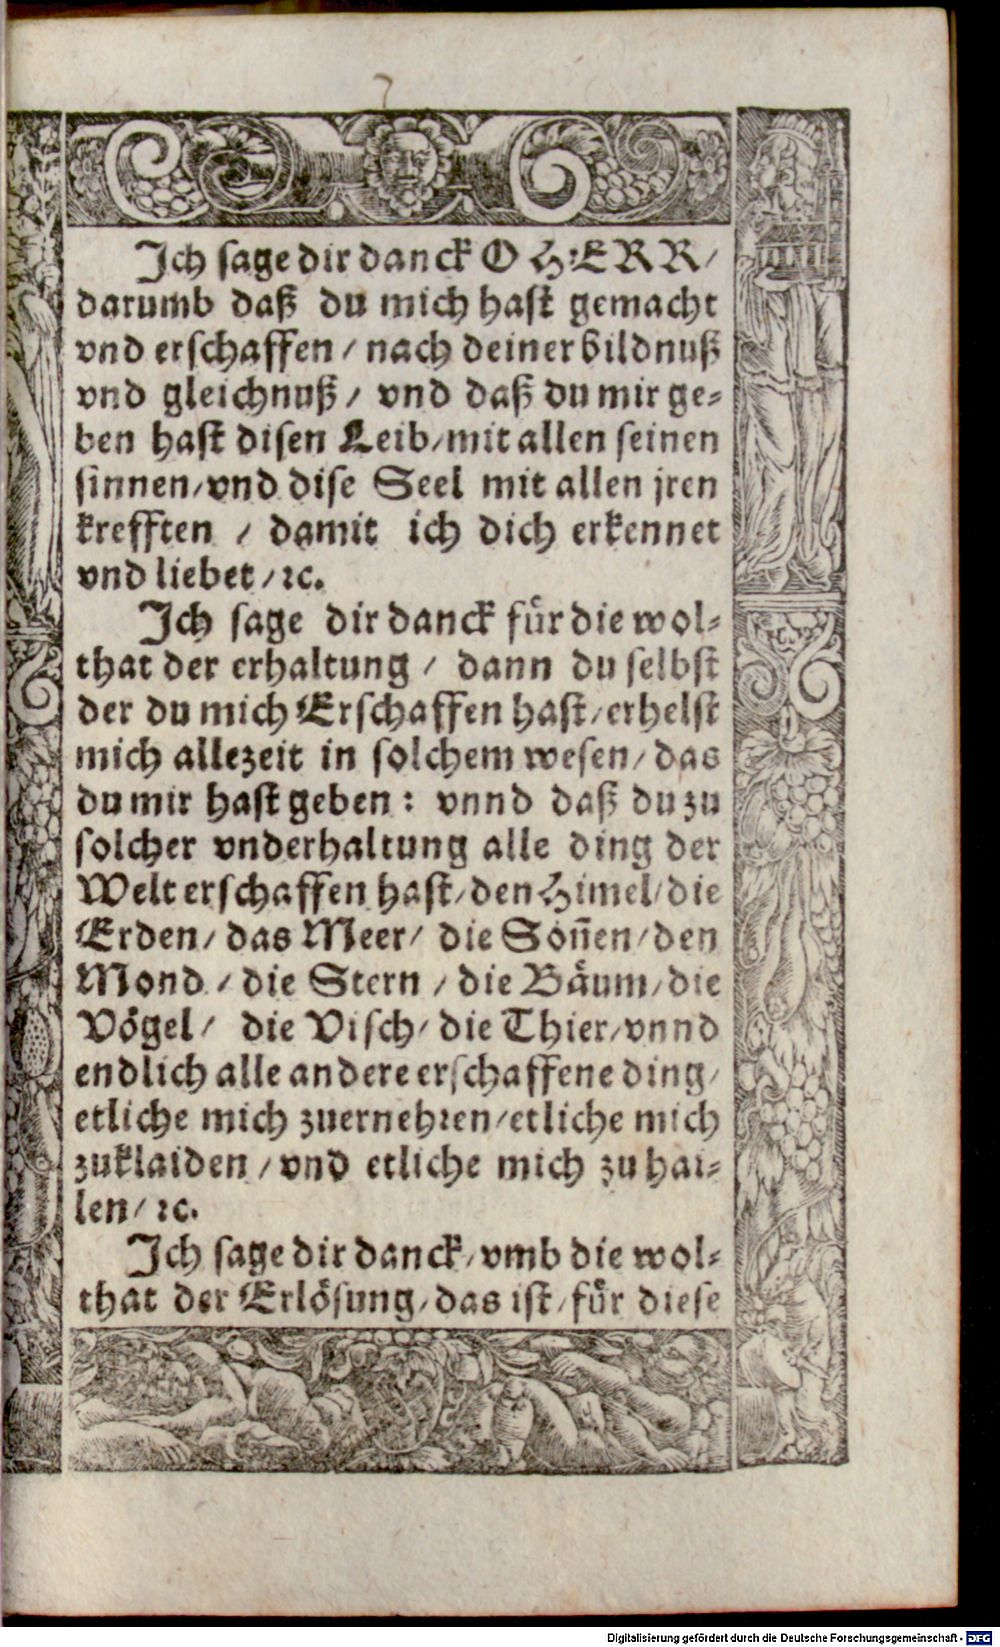 7
Ich sage dir danck O HERR/
darumb daß du mich hast gemacht
vnd erschaffen / nach deiner bildnuß
vnd gleichnuß / vnd daß du mir ge-
ben hast disen Leib/mit allen seinen
sinnen/vnd dise Seel mit allen jren
krefften / damit ich dich erkennet
vnd liebet / ꝛc.
Ich sage dir danck fuͤr die wol-
that der erhaltung / dann du selbst
der du mich Erschaffen hast/erhelst
mich allezeit in solchem wesen/das
du mir hast geben : vnnd daß du zu
solcher vnderhaltung alle ding der
Welt erschaffen hast/den Himel/die
Erden/das Meer/ die Soñen/den
Mond / die Stern / die Baͤum/die
Voͤgel/ die Visch/die Thier/vnnd
endlich alle andere erschaffene ding/
etliche mich zuernehren/etliche mich
zuklaiden /vnd etliche mich zu hai-
len/ ꝛc.
Ich sage dir danck/vmb die wol-
that der Erloͤsung/das ist/fuͤr diese
Digitalisierung gefördert durch die Deutsche Forschungsgemeinschaft - DFG